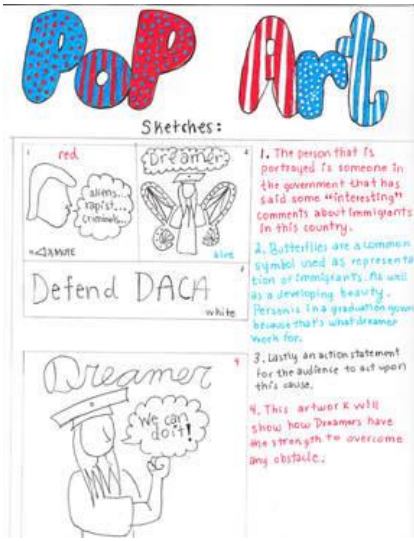 Pop Art
Sketches:
1
red
aliens...
rapist...
criminals...
MUTE
Dreamer
2
blue
3
Defend DACA
white
4
Dreamer
We can
do it!
1. The person that is
portrayed is someone in
the government that has
said some "interesting"
comments about immigrants
in this country.
2. Butterflies are a common
symbol used as representa
tion of immigrants. As well
as a developing beauty.
Person is in a graduation gown
because that's what dreamer
work for.
3. Lastly an action statement
for the audience to act upon
this cause.
4. This artwork will
show how Dreamers have
the strength to overcome
any obstacle.